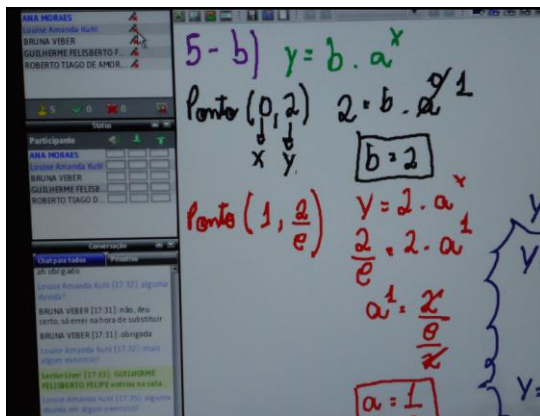 ANA MORAES
Louise Amanda Kuhl
BRUNA VEBER
GUILHERME FELISBERTO F...
ROBERTO TIAGO DE AMOR...
5
0
0
Status
Participante
ANA MORAES
Louise Amanda Kuhl
BRUNA VEBER
GUILHERME FELISB...
ROBERTO TIAGO D...
Conversação
Chat para todos Privativo
ah obrigado
Louise Amanda Kuhl [17:32]: alguma
dúvida?
BRUNA VEBER [17:31]: não, deu
certo, só errei na hora de substituir
BRUNA VEBER [17:31]: obrigada
Louise Amanda Kuhl [17:32]: mais
algum exercício?
LectorLive! [17:33]: GUILHERME
FELISBERTO FELIPE entrou na sala
Louise Amanda Kuhl [17:35]: alguma
dúvida em algum exercício?
5-b) y = b · a^x
Ponto (0, 2) 2 = b · a^0 1
x y
b = 2
Ponto (1, 2/e) y = 2 · a^x
2/e = 2 · a^1
a^1 = 2/e/2
a = 1
y
y
y=